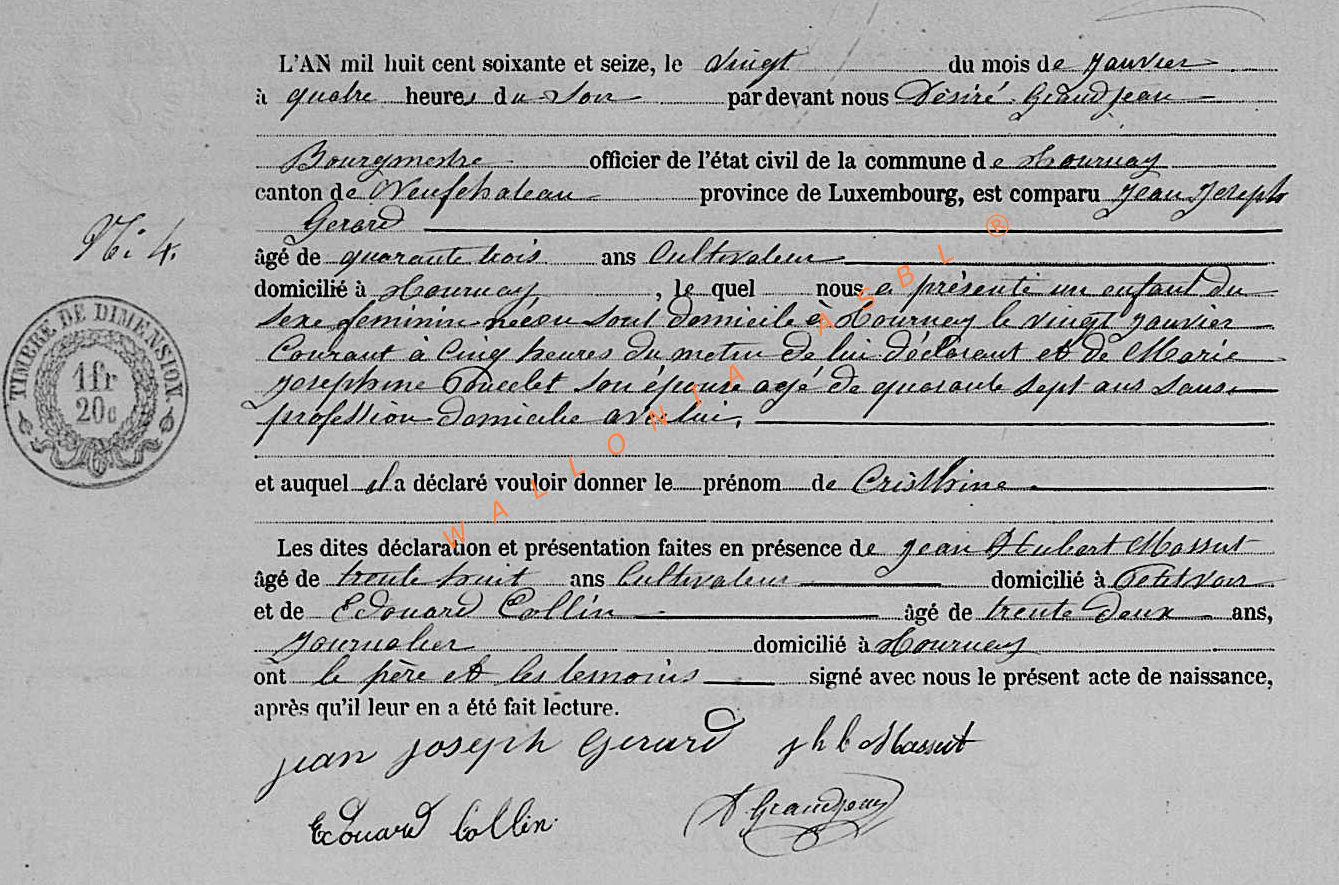 L'AN mil huit cent soixante et seize, le vingt du mois de Janvier
à quatre heures du soir par devant nous Désiré Grandjean
Bourgmestre officier de l'état civil de la commune de Tournay
canton de Neufchateau province de Luxembourg, est comparu Jean Joseph
Gerard
N: 4.
âgé de quarante trois ans Cultivateur
domicilié à Tournay, le quel nous a présenté un enfant du
sexe féminin née en son domicile à Tournay le vingt Janvier
Courant à Cinq heures du matin de lui déclarant et de Marie
Josephine Poncelet son épouse agé de quarante sept ans sans
profession domicilie avec lui,
et auquel il a déclaré vouloir donner le prénom de Cristhine
Les dites déclaration et présentation faites en présence de Jean Hubert Massut
âgé de trente huit ans Cultivateur domicilié à Petitvoir
et de Edouard Collin âgé de trente deux ans,
Journalier domicilié à Tournay
ont le père et les temoins signé avec nous le présent acte de naissance,
après qu'il leur en a été fait lecture.
jean joseph Gerard j h b Massut
Edouard Collin D Grandjean
TIMBRE DE DIMENSION
1fr
20c
WALLONIA ASBL ®